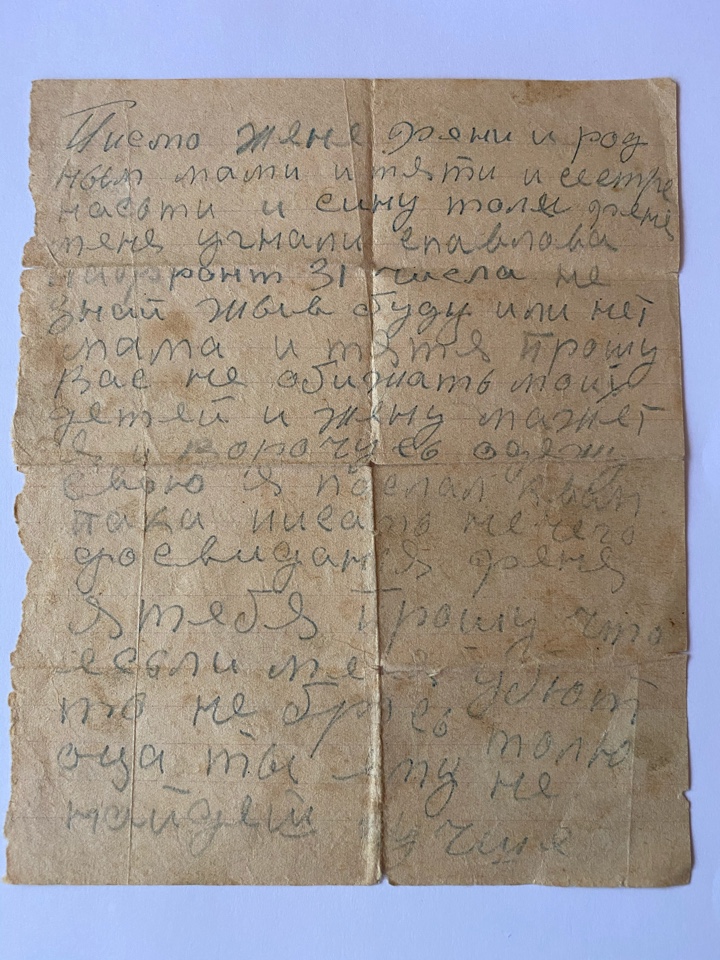 Писмо жене фени и род
ным мами и тяти и сестре
насьти и сину толи феня
меня угнали спавлова
нафронт 31 числа не
знай жыв буду или нет
мама и тятя прошу
вас не обижать моих
детей и жену мажет
я и ворочусь одежу
свою я послал квам
пака писать нечего
досвиданя феня
я тебя прошу что
еесьли меня убюют
то не брось толю
оца ты ему не
найдеш лучше